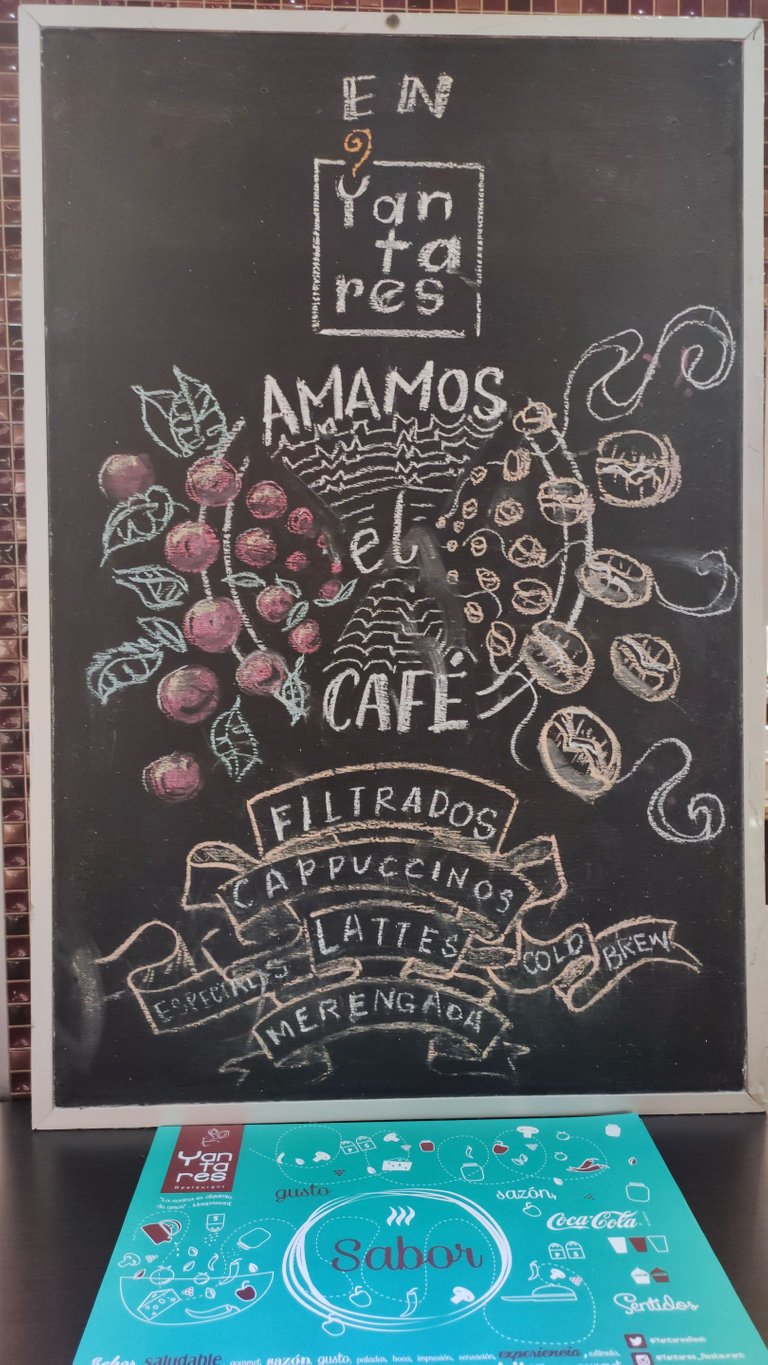 EN
Yan
ta
res
AMAMOS
el
CAFÉ
FILTRADOS
CAPPUCCINOS
LATTES
ESPECIALES
COLD BREW
MERENGADA
Yan
ta
res
Restaurant
"La cocina es alquimia
de amor" Maupassant
gusto
sazón,
Coca-Cola
Sabor
Sentidos
@YantaresRest
@Yantares_Restaurant
saludable gourmet, sazón, gusto, paladar, boca, impresión, sensación, experiencia, estímulo,